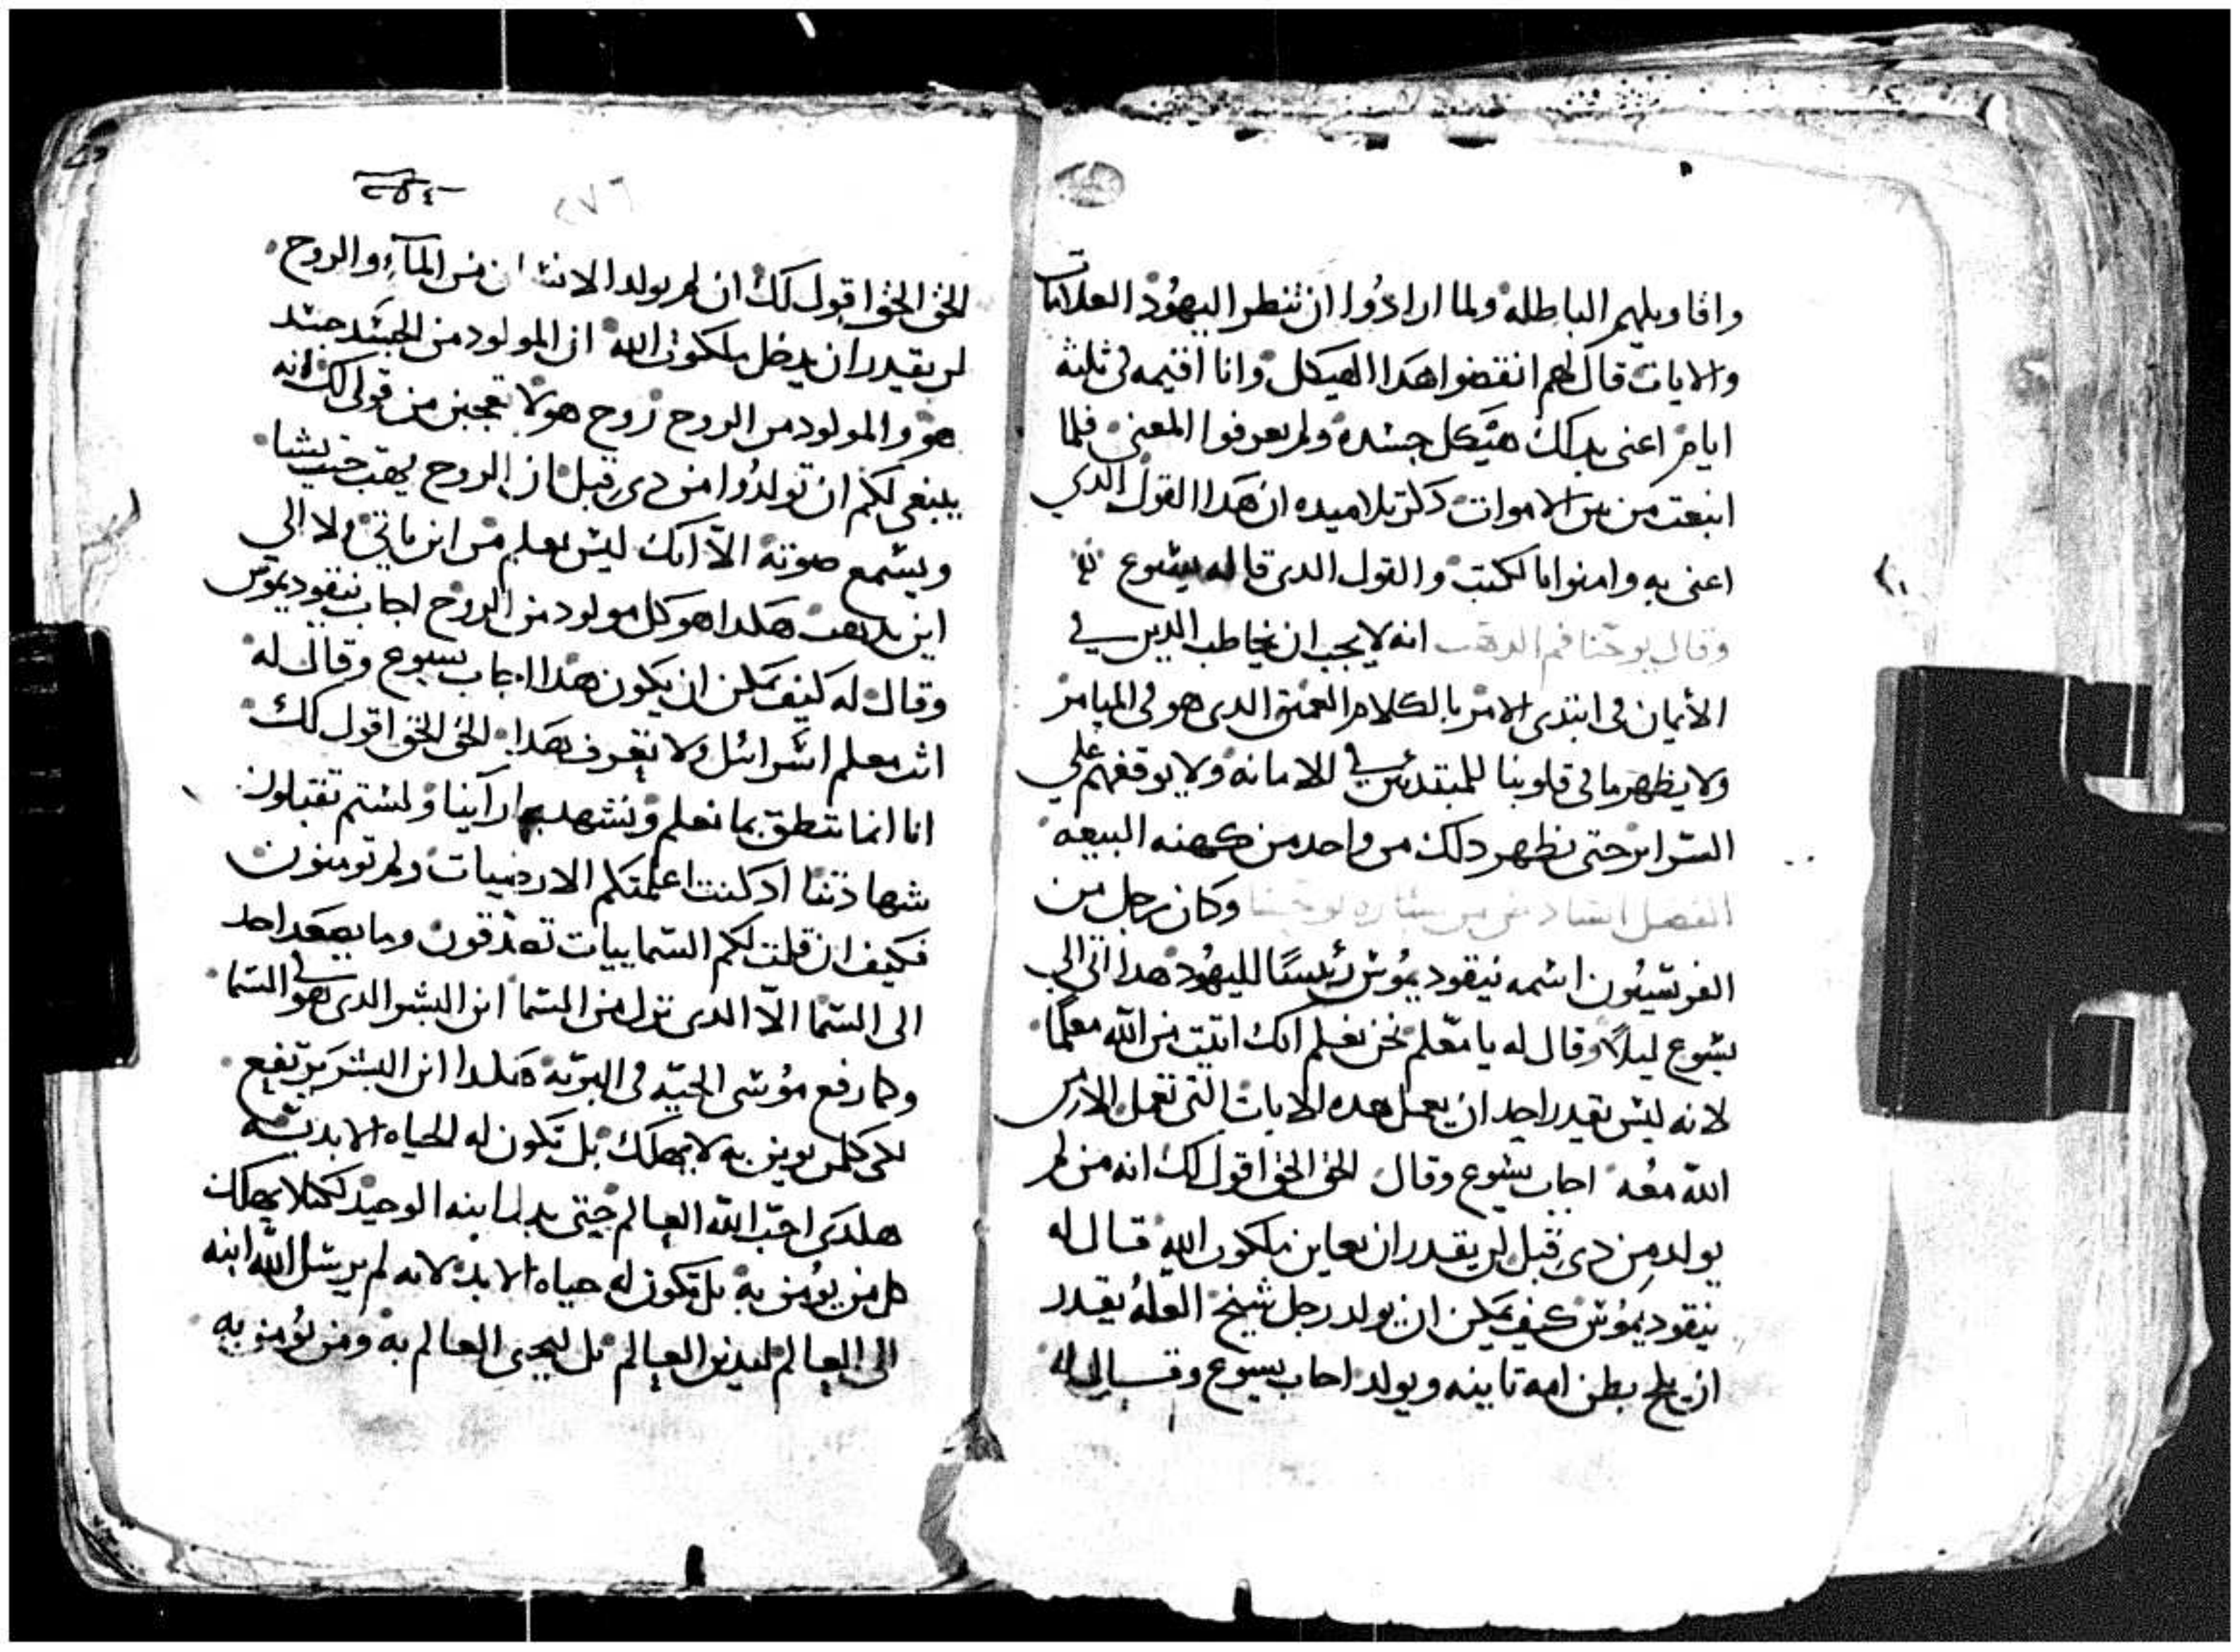 واقاويلهم الباطله ولما ارادوا ان تنطر اليهود العلامات
والايات قال لهم انقضوا هدا الهيكل وانا اقيمه في ثلثة
ايام اعنى بدلك هيكل جسده ولم يعرفوا المعنى فلما
انبعت من بين الاموات دكر تلاميده ان هدا القول الدي
اعنى به وامنوا بالكتب والقول الدى قاله يسوع
وقال يوحنا فم الدهب انه لا يجب ان يخاطب الدين في
الأيمان فى ابتدى الامر بالكلام العميق الدى هو فى الميامر
ولا يظهر ما فى قلوبنا للمبتدئين في الامانه ولا يوقفهم على
السراير حتى نظهر دلك من واحد من كهنه البيعه
الفصل السادس من بشاره يوحنا وكان رجل من
الفريسيون اسمه نيقوديموس رئيسًا لليهود هدا اتى الى
يسوع ليلاً وقال له يا معلم نحن نعلم انك اتيت من الله معلمًا
لانه ليس يقدر احد ان يعمل هده الايات التى تعمل الا من
الله معه اجاب يسوع وقال الحق الحق اقول لك انه من لم
يولد من دى قبل لن يقدر ان يعاين ملكوت الله قال له
نيقوديموس كيف يمكن ان يولد رجل شيخ العله يقدر
ان يلج بطن امه تانيه ويولد اجاب يسوع وقال له
٢٥٤
٢٧٦
الحق الحق اقول لك ان لم يولد الانسان من المآء والروح
لن يقدر ان يدخل ملكوت الله ان المولود من الجسد جسد
هو والمولود من الروح روح هو لا تعجبن من قولى لك انه
ينبغى لكم ان تولدوا من دى قبل ان الروح يهب حيث يشا
ويسمع صوته الا انك ليس تعلم من اين ياتى ولا الى
اين يدهب هكدا هو كل مولود من الروح اجاب نيقوديموس
وقال له كيف يمكن ان يكون هدا اجاب يسوع وقال له
انت معلم اسرائيل ولا تعرف هدا الحق الحق اقول لك
انا انما ننطق بما نعلم ونشهد بما راينا ولستم تقبلون
شهادتنا اد كنت اعلمتكم الارضيات ولم تومنون
فكيف ان قلت لكم السماييات تصدقون وما يصعد احد
الى السما الا الدى نزل من السما ابن البشر الدى هو في السما
وكما رفع موسى الحيه فى البريه هكدا ابن البشر يرتفع
لكى كلمن يومن به لا يهلك بل تكون له الحياه الابديه
هكدى احب الله العالم حتى بدل ابنه الوحيد لكيلا يهلك
كل من يومن به بل تكون له حياه الابد لانه لم يرسل الله ابنه
الى العالم ليدين العالم بل ليحيى العالم به ومن يؤمن به